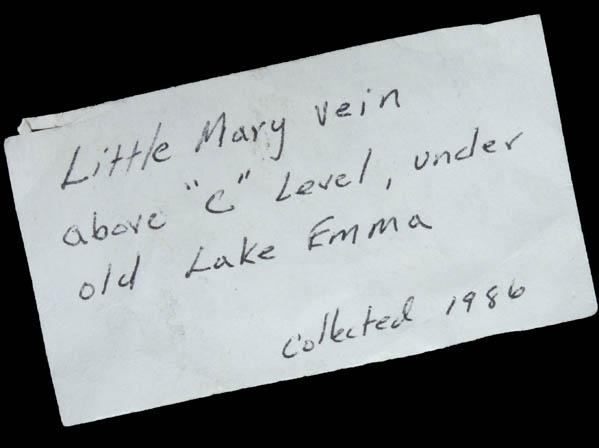 Little Mary vein
above "C" Level, under
old Lake Emma
Collected 1986